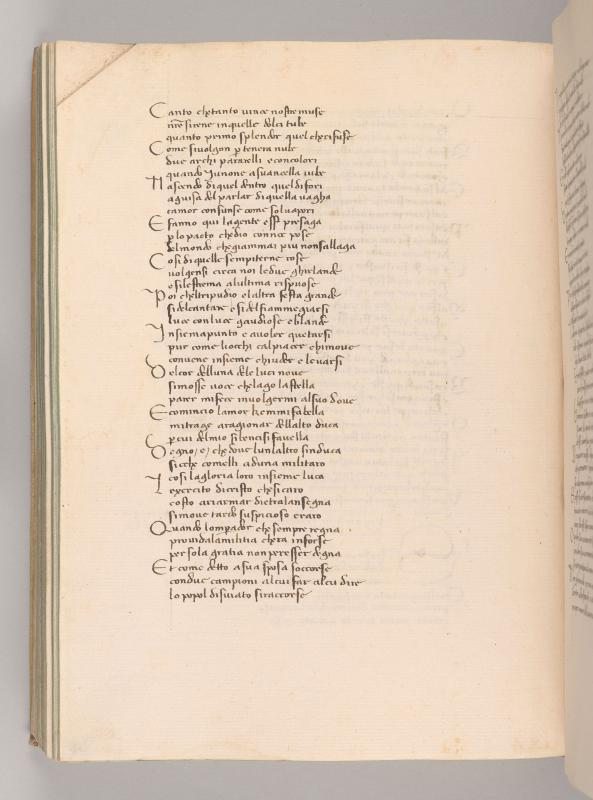 Canto che tanto vince nostre muse
nr̃e sirene in quelle dolci tube
quanto primo splendor quel che rifuse
Come si volgon p tenera nube
due archi pararelli e concolori
quando Iunone a sua ancella iube
Nascendo di quel dentro quel di fori
a guisa del parlar di quella vagha
camor consunse come sol vapori
E fanno qui la gente esser presaga
p lo pacto che dio con noe pose
del mondo che giammai piu non sallaga
Cosi di quelle sempiterne rose
volgensi circa noi le due ghirlande
e si lestrema alultima rispuose
Poi cheltripudio e laltra festa grande
si del cantare e si del fiammegiarsi
luce con luce gaudiose e blande
Insieme apunto e avoler quetarsi
pur come liocchi calpiacer che i move
convene insieme chiuder e levarsi
Del cor delluna dele luci nove
si mosse voce che lago la stella
parer mi fece involgermi alsuo dove
E comincio lamor che mmi fa bella
mi trage aragionar dellalto duca
p cui del mio si ben ci si favella
Degno e che dove lun laltro sinduca
si che comelli aduna militaro
cosi la gloria loro insieme luca
Lexercito di cristo che si caro
costo ariarmar dietralansegna
si move tardo suspicioso e raro
Quando lomperador che sempre regna
provide alamilitia chera inforse
per sola gratia non per esser degna
Et come detto a sua sposa soccorse
con due campioni al cui far al cui dire
lo popol disviato si raccorse